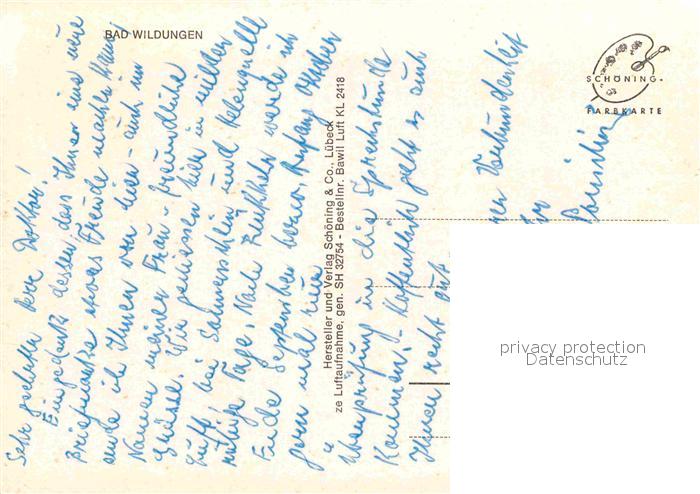 BAD WILDUNGEN
SCHÖNING
FARBKARTE
Hersteller und Verlag Schöning & Co., Lübeck
ze Luftaufnahme, gen. SH 32754 - Bestellnr. Bawil Luft KL 2418
Sehr geehrter Herr Doktor!
Eingedenk dessen, dass Ihnen eine neue
Briefmarke etwas Freude machen kann,
sende ich Ihnen von hier - auch im
Namen meiner Frau - freundliche
Grüsse. Wir geniessen hier in milder
Luft bei Sonnenschein und
ruhige Tage. Nach Rückkehr werde ich
Ende September bzw. Anfang Oktober
gern mal zur
Überprüfung in die Sprechstunde
kommen. - Hoffentlich geht es auch
Ihnen recht gut
Verbundenheit
Ihr
privacy protection
Datenschutz